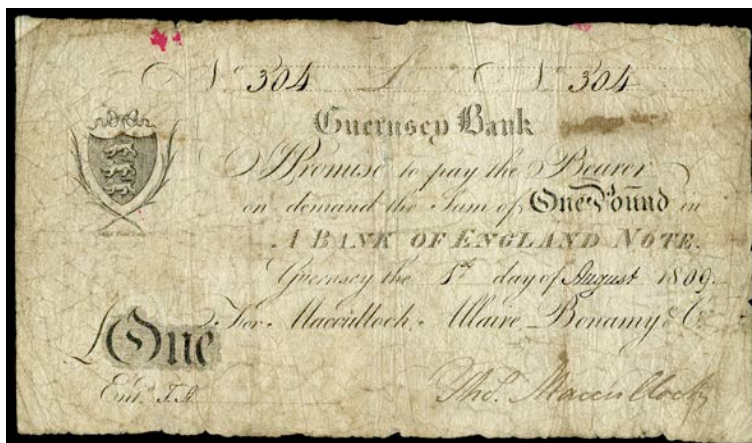 No 304 £ No 304
Guernsey Bank
I Promise to pay the Bearer
on demand the Sum of One Pound in
A BANK OF ENGLAND NOTE.
Guernsey the 1st day of August 1809.
£One For Macculloch, Allaire, Bonamy & Co
Entd J.A.
Tho. Macculloch